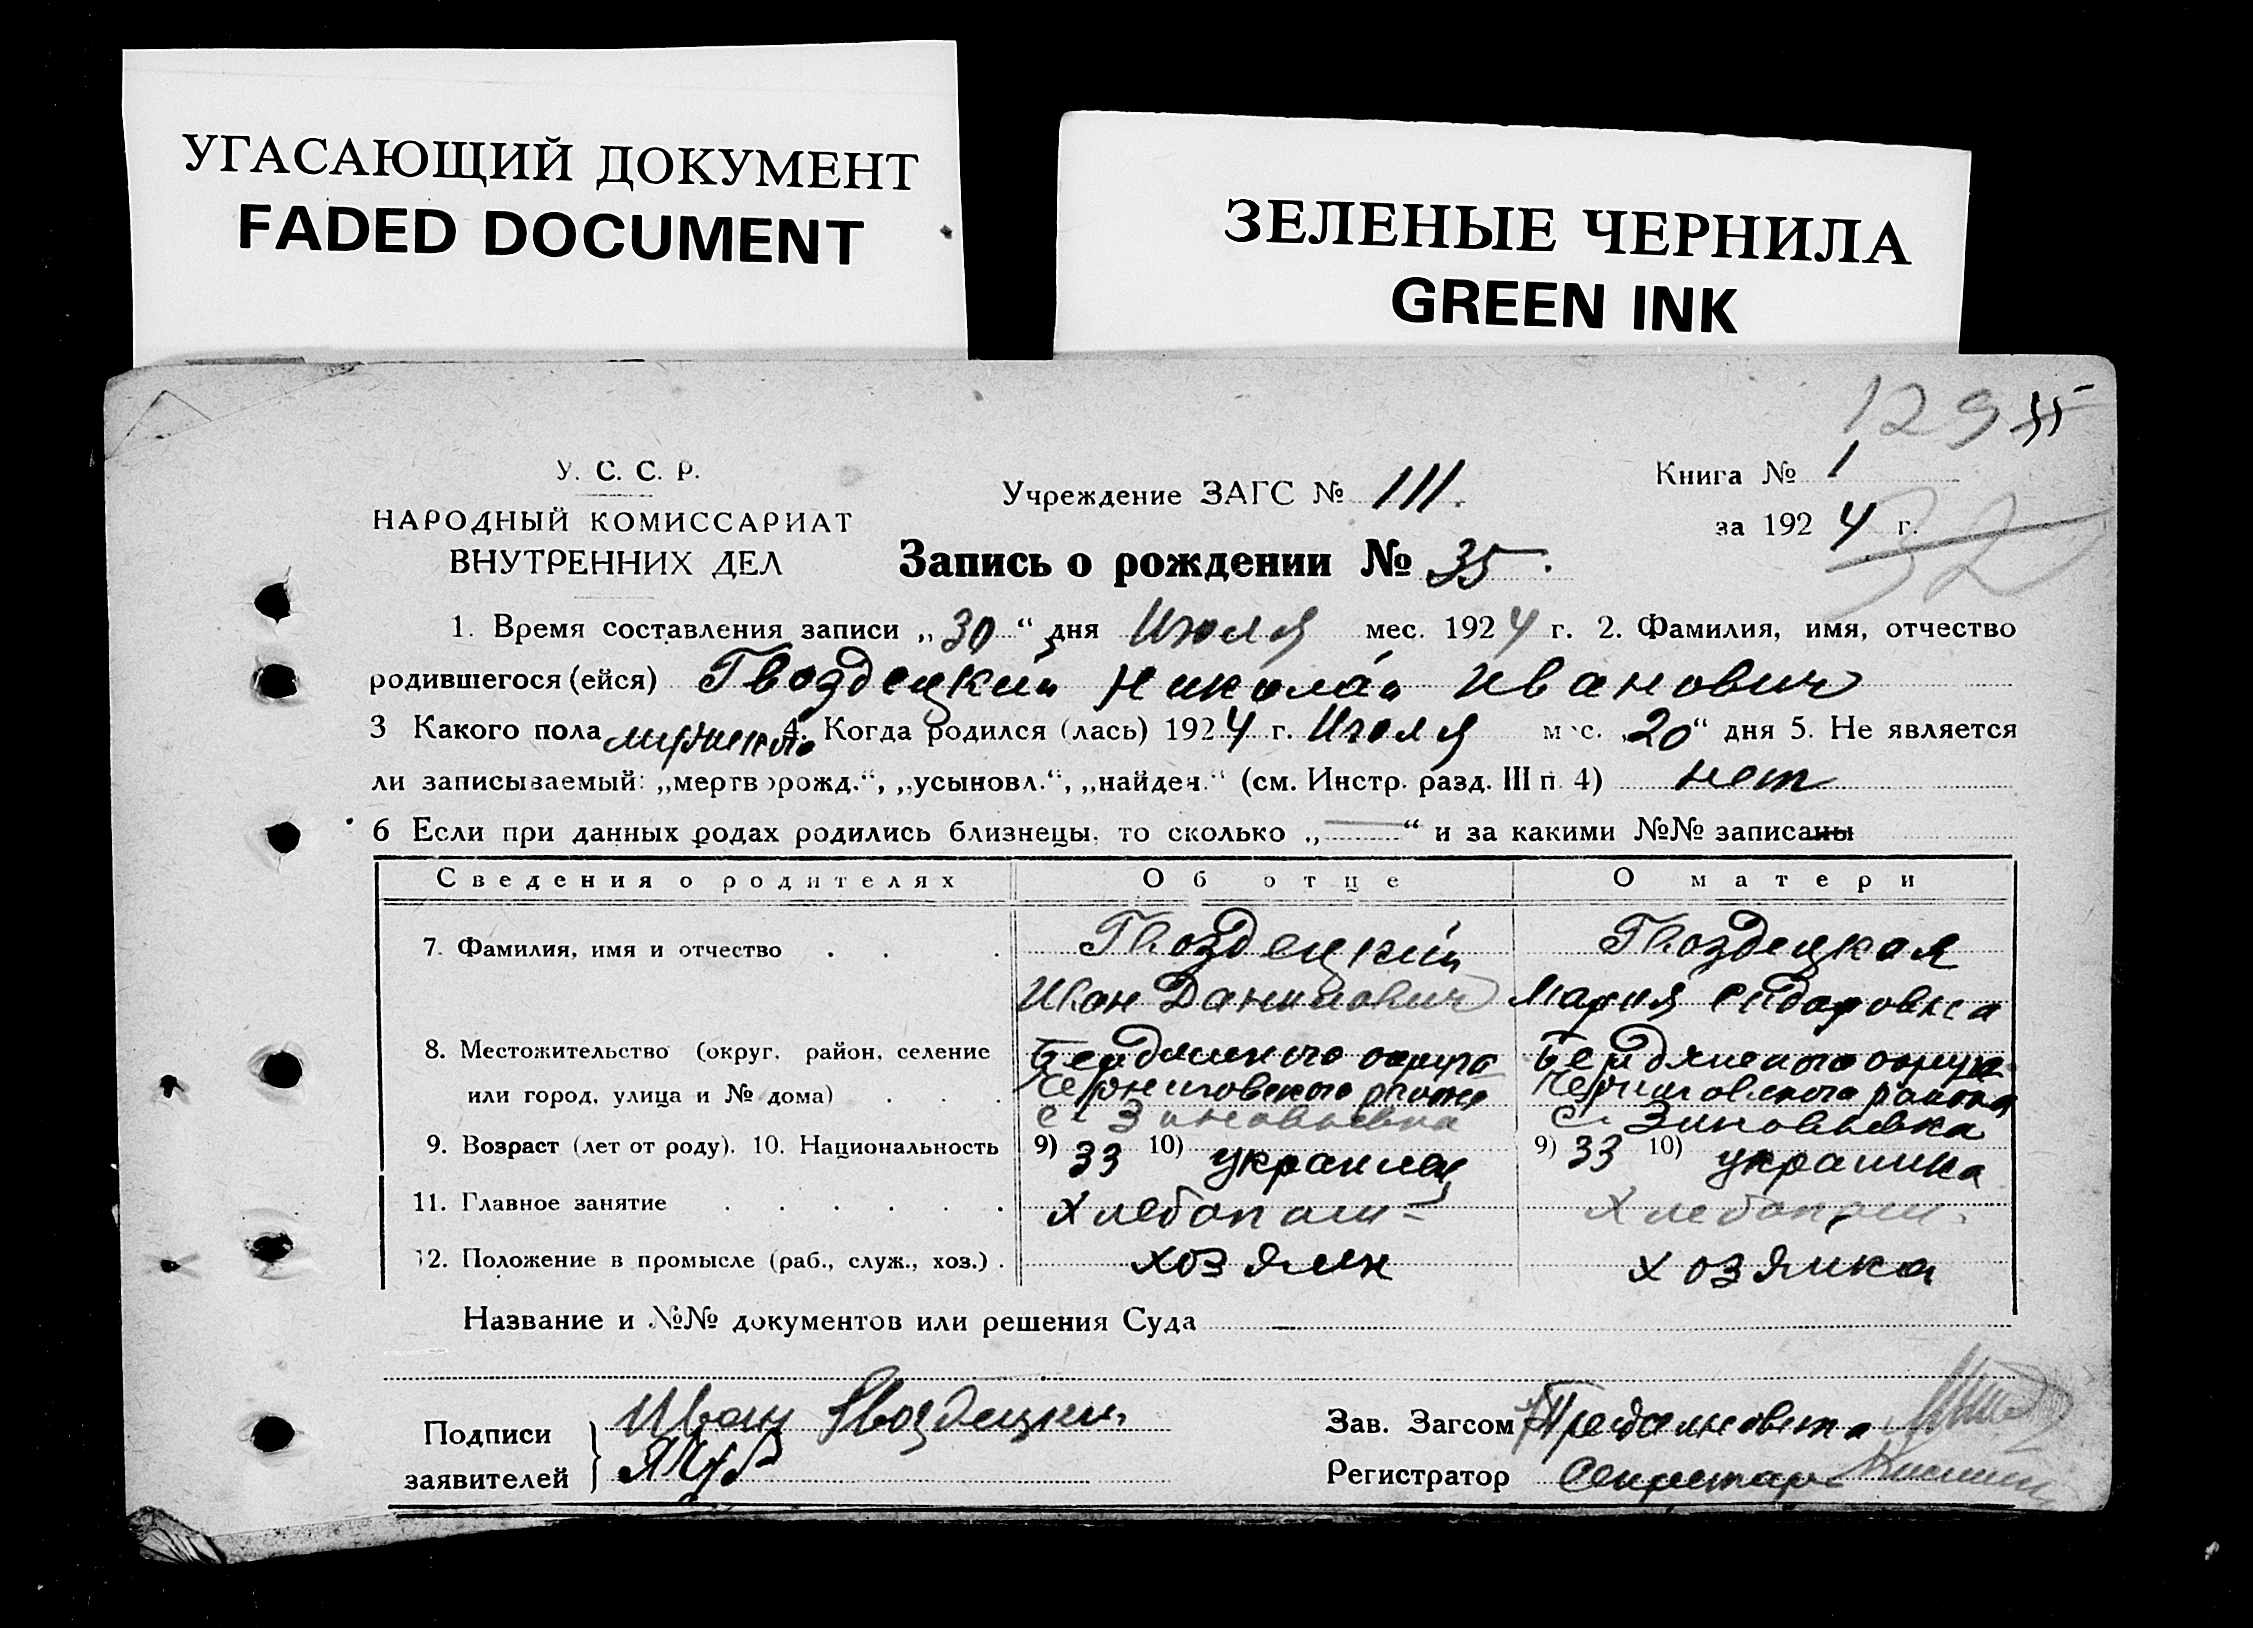 УГАСАЮЩИЙ ДОКУМЕНТ
FADED DOCUMENT
ЗЕЛЕНЫЕ ЧЕРНИЛА
GREEN INK
129 35
У. С. С. Р.
НАРОДНЫЙ КОМИССАРИАТ
ВНУТРЕННИХ ДЕЛ
Учреждение ЗАГС № 111.
Книга № 1
за 1924 г.
32
Запись о рождении № 35.
1. Время составления записи „30“ дня Июля мес. 1924 г. 2. Фамилия, имя, отчество
родившегося (ейся) Гвоздецкий Николай Иванович
3 Какого пола мужского 4. Когда родился (лась) 1924 г. Июля мес. „20“ дня 5. Не является
ли записываемый: „мертворожд.“, „усыновл.“, „найден.“ (см. Инстр. разд. III п. 4) нет
6 Если при данных родах родились близнецы, то сколько „—“ и за какими №№ записаны
Сведения о родителях Об отце О матери
7. Фамилия, имя и отчество Гвоздецкий Гвоздецкая
Иван Данилович Мария Сидоровна
8. Местожительство (округ, район, селение Бердянского округа Бердянского округа
или город, улица и № дома) Черниговского района Черниговского района
с. Зиновьевка с. Зиновьевка
9. Возраст (лет от роду). 10. Национальность 9) 33 10) украинец 9) 33 10) украинка
11. Главное занятие Хлебопаш- Хлебопаш.
12. Положение в промысле (раб., служ., хоз.) хозяин хозяйка
Название и №№ документов или решения Суда —
Подписи заявителей } Иван Гвоздецкий
Зав. Загсом Предсельсовета
Регистратор Секретарь